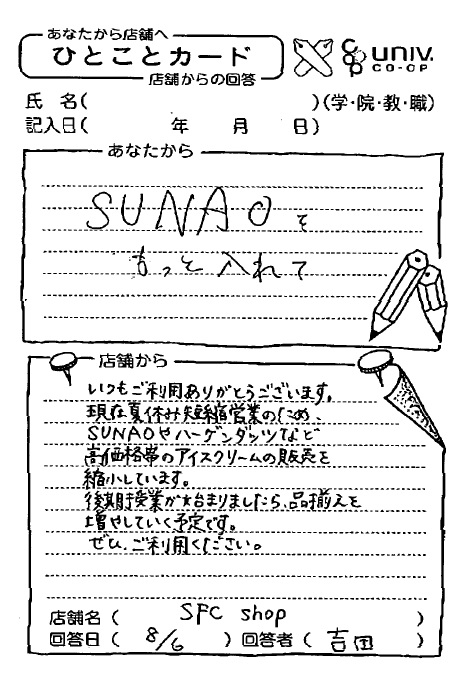 あなたから店舗へ
ひとことカード
店舗からの回答
univ.
co-op
CO-OP
氏 名( )(学・院・教・職)
記入日( 年 月 日)
あなたから
SUNAOを
もっと入れて
店舗から
いつもご利用ありがとうございます。
現在夏休み短縮営業のため、
SUNAOやハーゲンダッツなど
高価格帯のアイスクリームの販売を
縮小しています。
後期授業が始まりましたら、品揃えを
増やしていく予定です。
ぜひ、ご利用ください。
店舗名( SFC shop )
回答日( 8/6 )回答者( 吉田 )